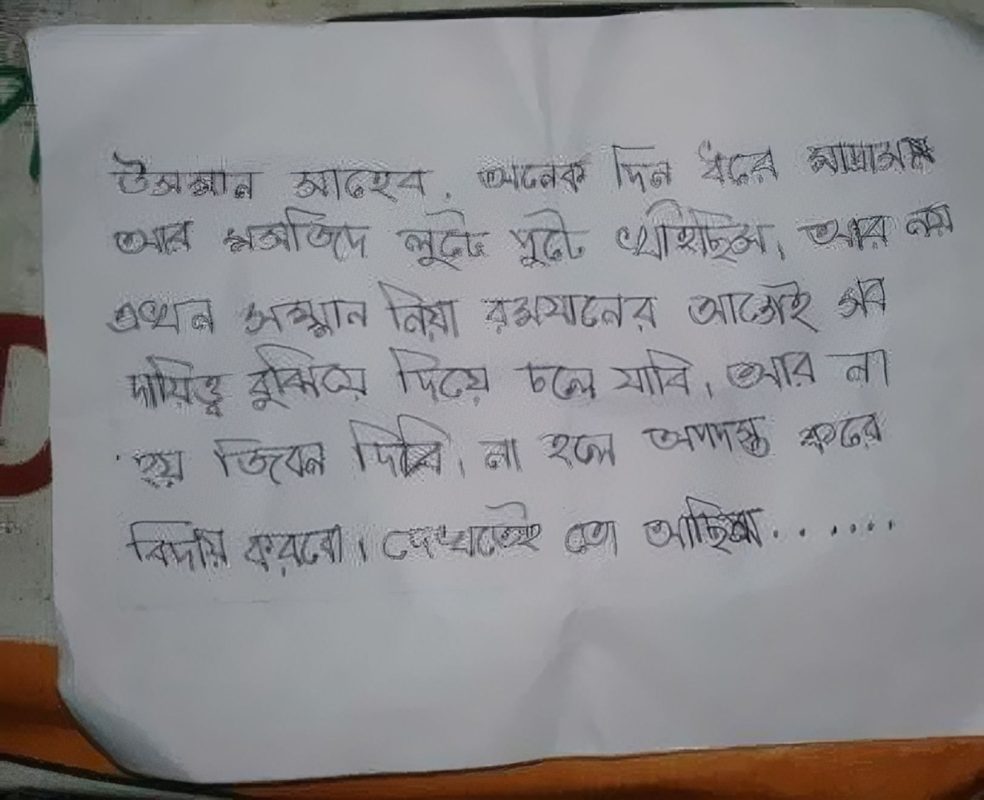 উসমান সাহেব, অনেক দিন ধরে মাদ্রাসার
আর মসজিদে লুটে পুটে খাইছিস, আর নয়
এখন সম্মান নিয়া রমযানের আগেই সব
দায়িত্ব বুঝিয়ে দিয়ে চলে যাবি, আর না
হয় জিবন দিবি। না হলে অপদস্ত করে
বিদায় করবো। দেখতেই তো আছিস.......